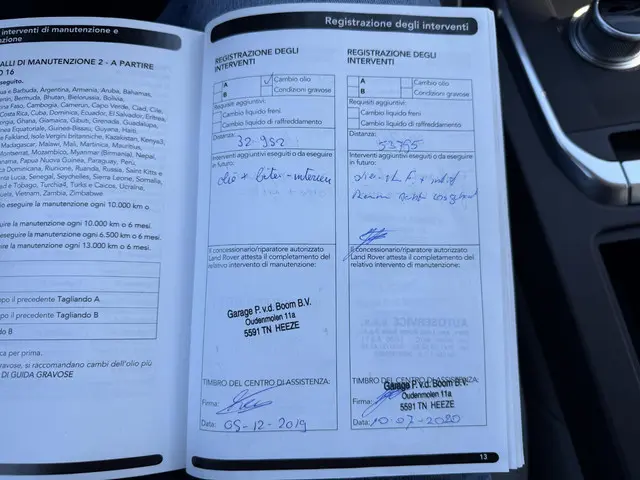 interventi di manutenzione e
ALLI DI MANUTENZIONE 2 - A PARTIRE
O 16
eseguito.
ua e Barbuda, Argentina, Armenia, Aruba, Bahamas,
Benin, Bermuda, Bhutan, Bielorussia, Bolivia,
Burkina Faso, Cambogia, Camerun, Capo Verde, Ciad, Cile,
Costa Rica, Cuba, Dominica, Ecuador, El Salvador, Eritrea,
Georgia, Ghana, Giamaica, Gibuti, Grenada, Guadalupa,
Guinea Equatoriale, Guinea-Bissau, Guyana, Haiti,
e Falkland, Isole Vergini Britanniche, Kazakistan, Kenya3,
Madagascar, Malawi, Mali, Martinica, Mauritius,
Montserrat, Mozambico, Myanmar (Birmania), Nepal,
anama, Papua Nuova Guinea, Paraguay, Perù,
ca Dominicana, Riunione, Ruanda, Russia, Saint Kitts e
nta Lucia, Senegal, Seychelles, Sierra Leone, Sudan,
d e Tobago, Turchia4, Turks e Caicos, Ucraina,
Vietnam, Zambia, Zimbabwe
eseguire la manutenzione ogni 10.000 km o
uire la manutenzione ogni 10.000 km o 6 mesi.
eseguire la manutenzione ogni 6.500 km o 6 mesi.
uire la manutenzione ogni 13.000 km o 6 mesi.
po il precedente Tagliando A
po il precedente Tagliando B
do B
ca per prima.
gravose, si raccomandano cambi dell'olio più
DI GUIDA GRAVOSE
Registrazione degli interventi
REGISTRAZIONE DEGLI
INTERVENTI
A
Cambio olio
B
Condizioni gravose
Requisiti aggiuntivi:
Cambio liquido freni
Cambio liquido di raffreddamento
Distanza:
32.982
Interventi aggiuntivi eseguiti o da eseguire
in futuro:
olie +
Il concessionario/riparatore autorizzato
Land Rover attesta il completamento del
relativo intervento di manutenzione:
Garage P. v.d. Boom B.V.
Oudenmolen 11a
5591 TN HEEZE
TIMBRO DEL CENTRO DI ASSISTENZA:
Firma:
Data: 05-12-2019
REGISTRAZIONE DEGLI
INTERVENTI
A
Cambio olio
B
Condizioni gravose
Requisiti aggiuntivi:
Cambio liquido freni
Cambio liquido di raffreddamento
Distanza:
53795
Interventi aggiuntivi eseguiti o da eseguire
in futuro:
Il concessionario/riparatore autorizzato
Land Rover attesta il completamento del
relativo intervento di manutenzione:
TIMBRO DEL CENTRO DI ASSISTENZA:
Garage P. v.d. Boom B.V.
Oudenmolen 11a
5591 TN HEEZE
Firma:
Data: 10-07-2020
13